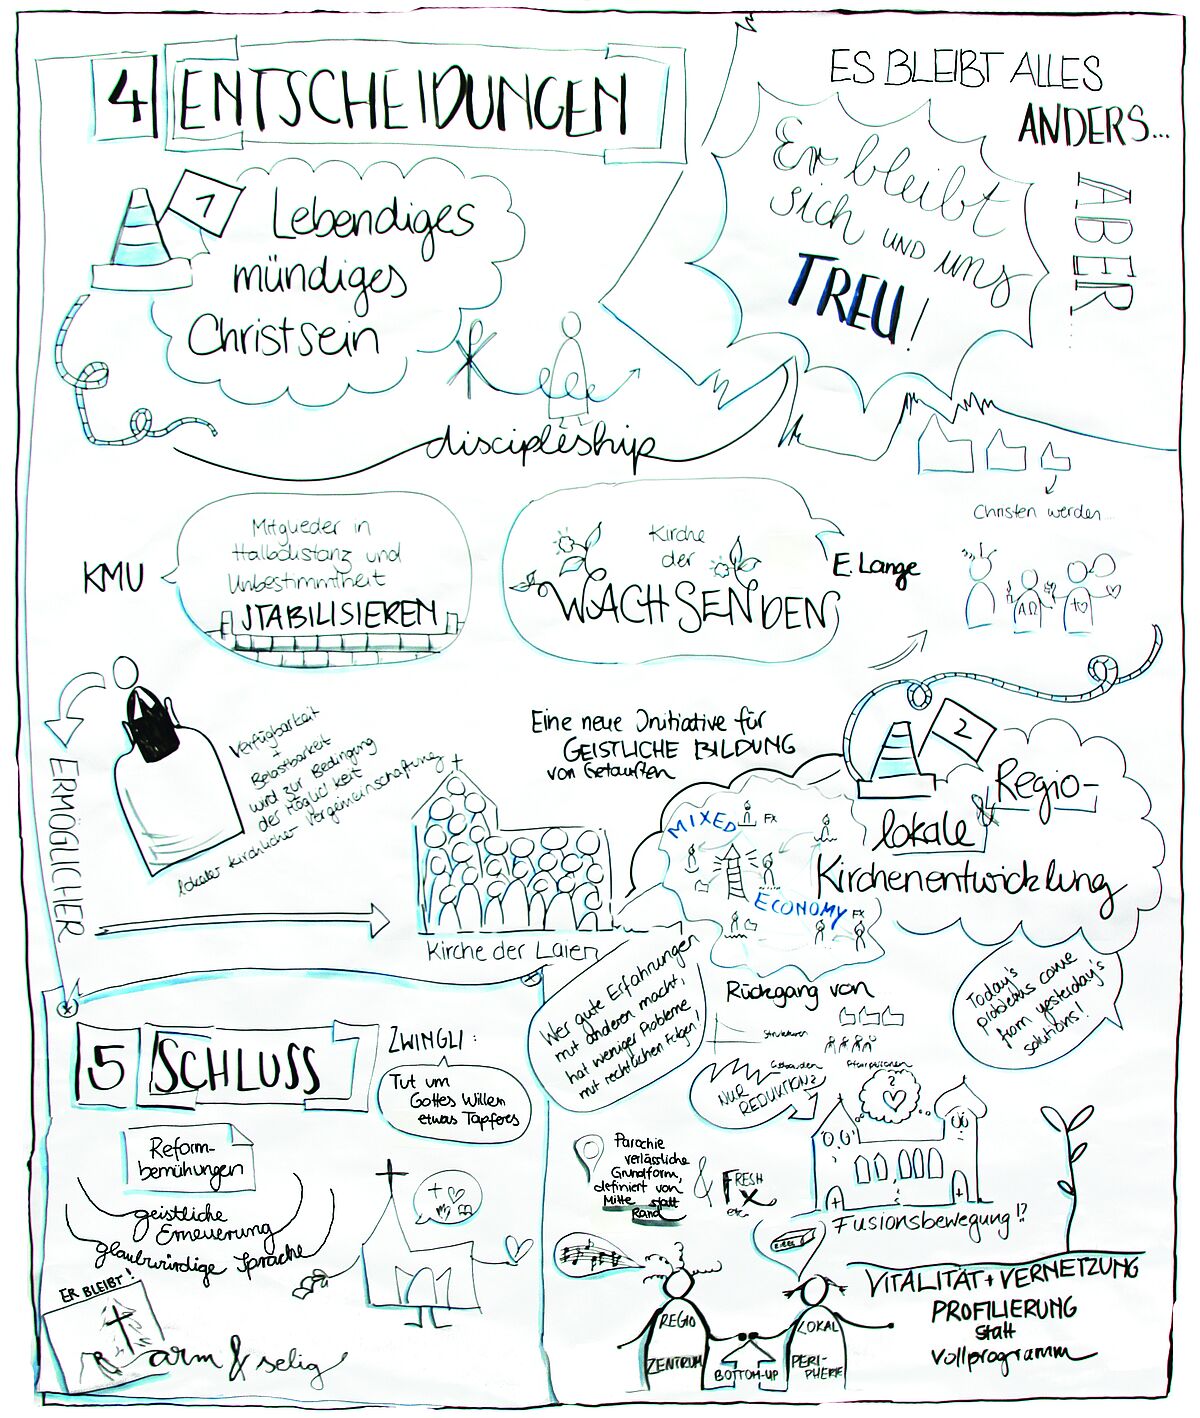 4 ENTSCHEIDUNGEN
ES BLEIBT ALLES
ANDERS...
ABER...
Er bleibt
sich UND uns
TREU!
1
Lebendiges
mündiges
Christsein
discipleship
Christen werden...
KMU
Mitglieder in
Halbdistanz und
Unbestimmtheit
STABILISIEREN
Kirche
der
WACHSENDEN
E. Lange
AΩ
ERMÖGLICHER
Verfügbarkeit
+
Belastbarkeit
wird zur Bedingung
der Möglichkeit
lokaler kirchlicher Vergemeinschaftung
Kirche der Laien
Eine neue Initiative für
GEISTLICHE BILDUNG
von Getauften
2
Regio-
&
lokale
Kirchenentwicklung
MIXED
FX
ECONOMY
FX
Wer gute Erfahrungen
mit anderen macht,
hat weniger Probleme
mit rechtlichen Folgen!
Rückgang von
Strukturen
Gebäuden
Pfarrpersonen
NUR
REDUKTION?
Today's
problems come
from yesterday's
solutions!
Parochie
verlässliche
Grundform,
definiert von
Mitte statt
Rand
&
FRESH
X
etc.
?
Fusionsbewegung!?
VITALITÄT + VERNETZUNG
PROFILIERUNG
statt
Vollprogramm
REGIO
ZENTRUM
BOTTOM-UP
LOKAL
PERI-
PHERIE
5 SCHLUSS
ZWINGLI:
Tut um
Gottes Willen
etwas Tapferes
Reform-
bemühungen
geistliche
Erneuerung
glaubwürdige Sprache
ER BLEIBT!
arm & selig